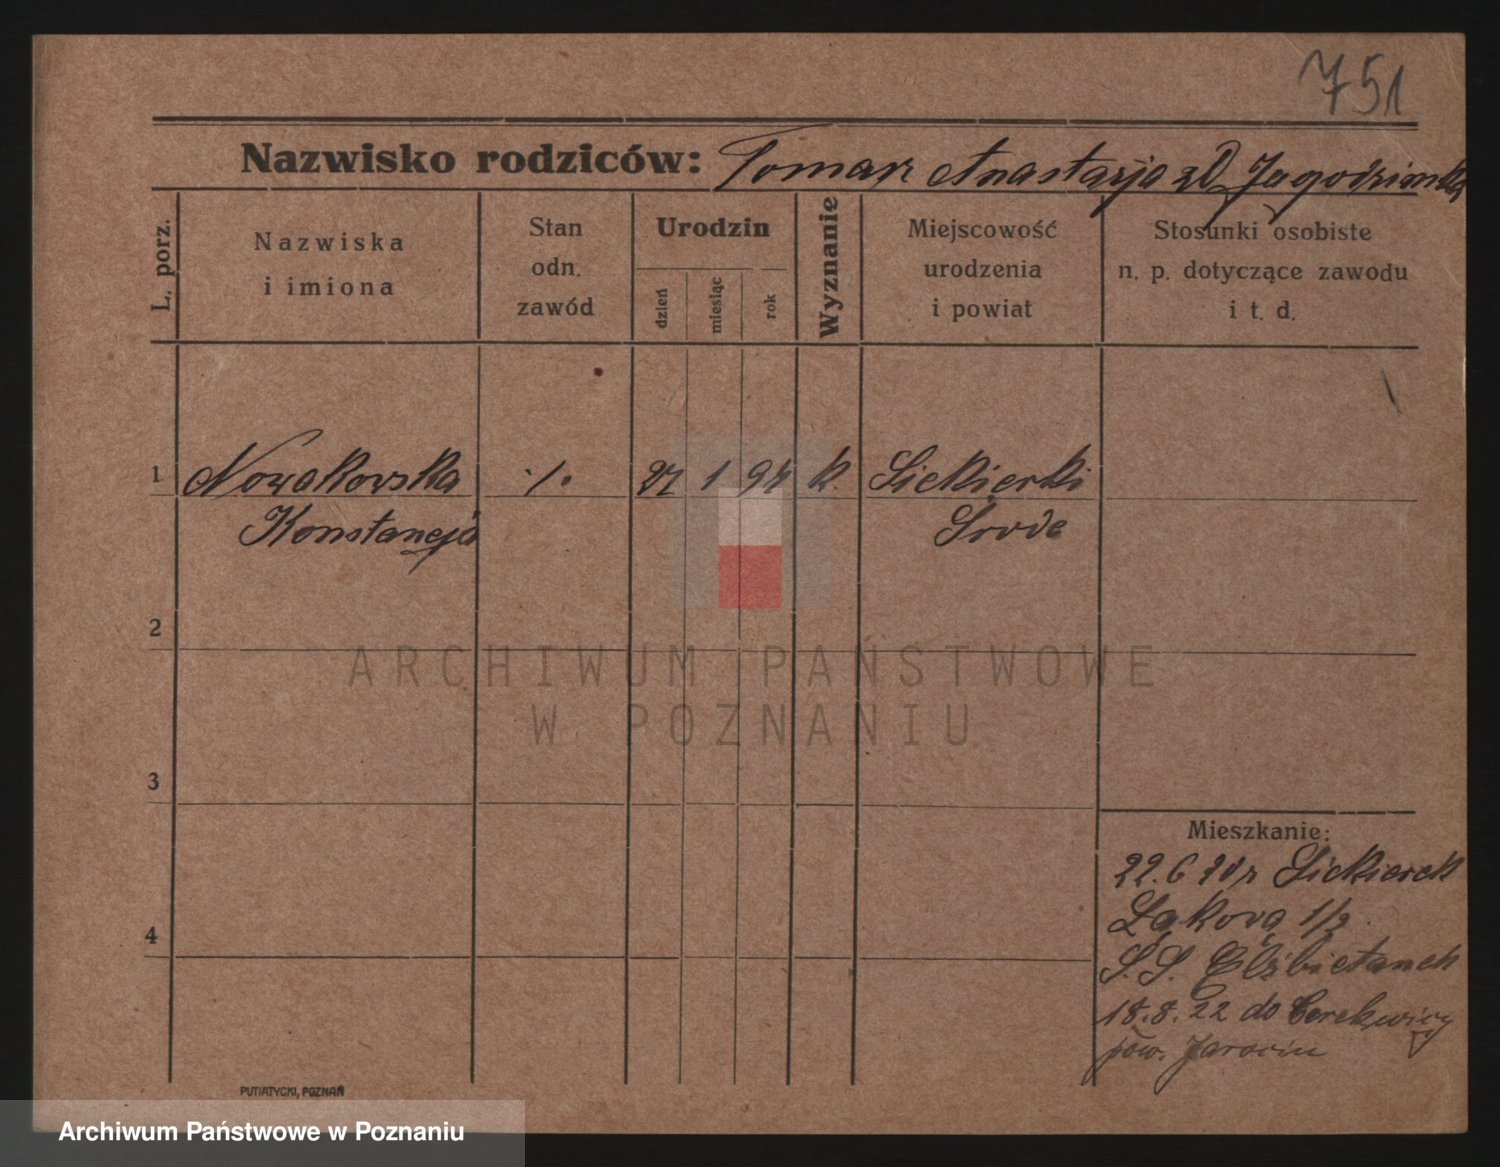 751
Nazwisko rodziców: Tomasz Anastazja zd Jagodzinska
L. porz.
Nazwiska
i imiona
Stan
odn.
zawód
Urodzin
dzień
miesiąc
rok
Wyznanie
Miejscowość
urodzenia
i powiat
Stosunki osobiste
n. p. dotyczące zawodu
i t. d.
1 Nowakowska ·/. 27 1 94 k. Siekierki
Konstancja Środa
2
ARCHIWUM PAŃSTWOWE
W POZNANIU
3
Mieszkanie:
22.6 20 r Siekierek
4 Łąkowa 1/2.
S.S. Elżbietanek
18.8.22 do Cerekwicy
pow. Jarocin
PUTIATYCKI, POZNAŃ
Archiwum Państwowe w Poznaniu